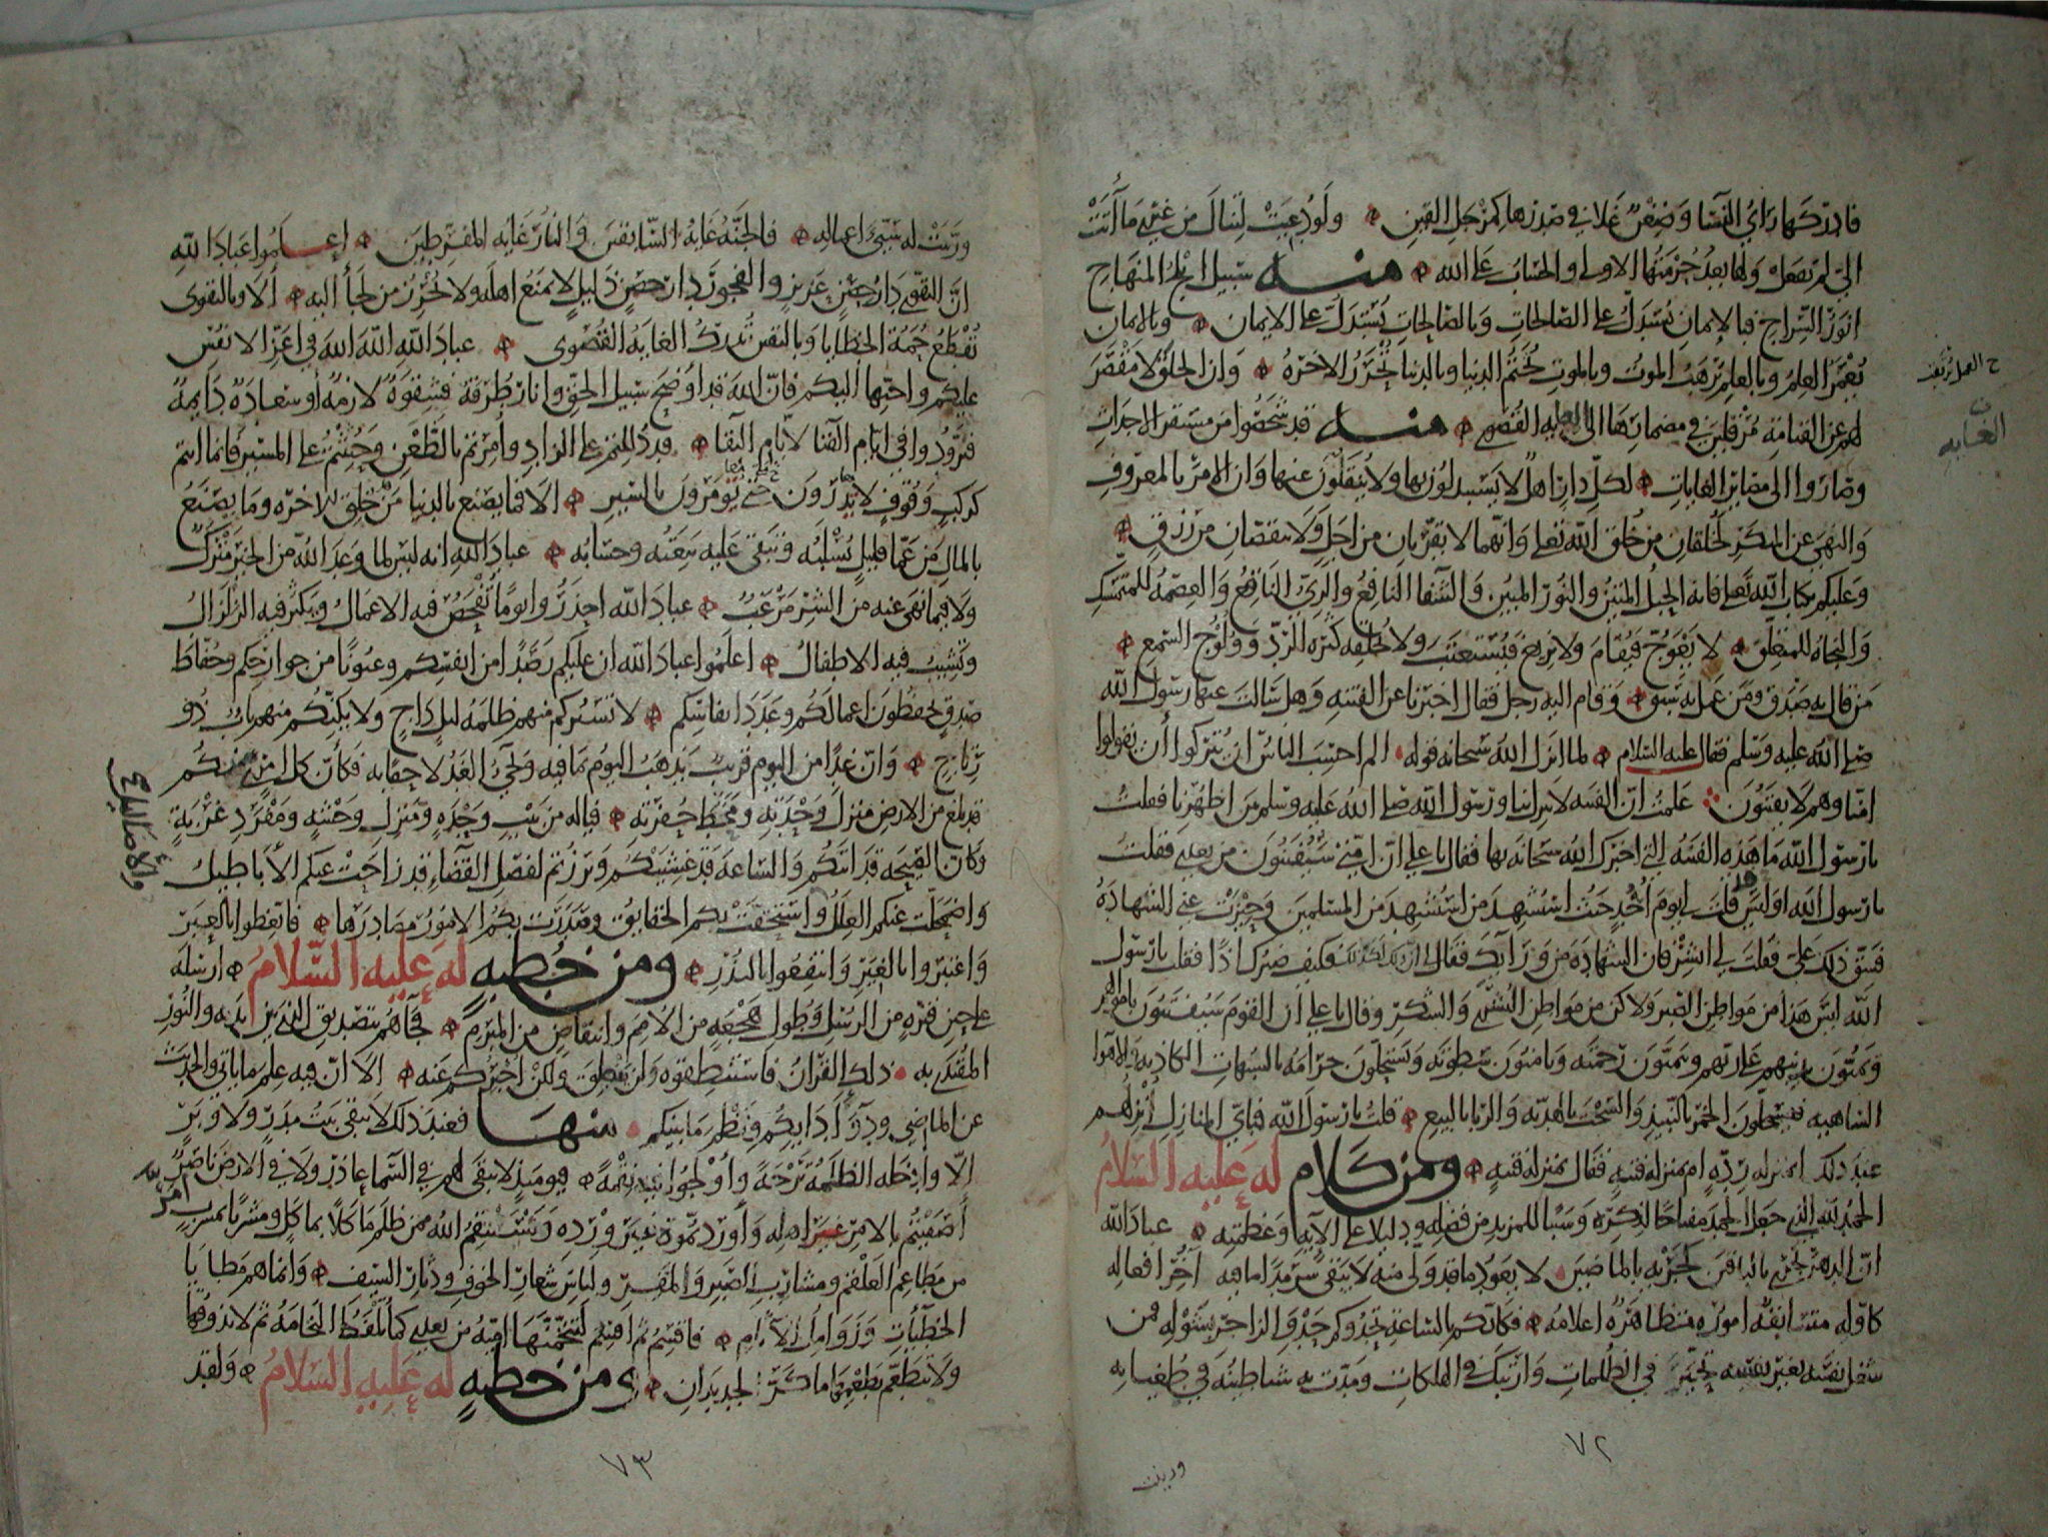 فادركها راي النسا وضغن غلا في صدرها كمرجل القين ولو دعيت لتنال من غيري ما أتت
الي لم تفعل ولها بعد حرمتها الاولى والحساب على الله منه سبيل ابلج المنهاج
انور السراج فبالإيمان يستدل على الصالحات وبالصالحات يستدل على الايمان وبالايمان
يعمر العلم وبالعلم يرهب الموت وبالموت تختم الدنيا وبالدنيا تحرز الاخرة وان الخلق لا مقصر
لهم عن القيامة مرقلين في مضمارها الى الغايه القصوى منه قد شخصوا من مستقر الاجداث
وصاروا الى مصاير الغايات لكل دار اهل لا يستبدلون بها ولا ينقلون عنها وان الامر بالمعروف
والنهي عن المنكر لخلقان من خلق الله تعالى وانهما لا يقربان من اجل ولا ينقصان من رزق
وعليكم بكتاب الله تعالى فانه الحبل المتين والنور المبين والشفا النافع والري الناقع والعصمة للمتمسك
والنجاة للمتعلق لا يعوج فيقام ولا يزيغ فيستعتب ولا تخلقه كثرة الرد وولوج السمع
من قال به صدق ومن عمل به سبق وقام اليه رجل فقال اخبرنا عن الفتنه وهل سالت عنها رسول الله
صلى الله عليه وسلم فقال عليه السلام لما انزل الله سبحانه قوله الم احسب الناس ان يتركوا أن يقولوا
امنا وهم لا يفتنون علمت ان الفتنه لا تنزل بنا ورسول الله صلى الله عليه وسلم بين اظهرنا فقلت
يا رسول الله ما هذه الفتنة التي اخبرك الله سبحانه بها فقال يا علي ان امتي سيفتنون من بعدي فقلت
يا رسول الله اوليس قد قلت لي يوم أحد حيث استشهد من استشهد من المسلمين وحيزت عني الشهادة
فشق ذلك علي فقلت لي ابشر فان الشهادة من ورآيك فقال لي ان ذلك لكذلك فكيف صبرك اذا فقلت يا رسول
الله ليس هذا من مواطن الصبر ولاكن من مواطن البشرى والشكر وقال يا علي ان القوم سيفتنون باموالهم
ويمنون بدينهم على ربهم ويتمنون رحمته ويامنون سطوته ويستحلون حرامه بالشبهات الكاذبة والاهوا
الساهيه فيستحلون الخمر بالنبيذ والسحت بالهدية والربا بالبيع قلت يا رسول الله فباي المنازل أنزلهم
عند ذلك ابمنزله ردة ام بمنزله فتنة فقال بمنزله فتنة ومن كلام له عليه السلام
الحمد لله الذي جعل الحمد مفتاحا لذكره وسببا للمزيد من فضله ودليلا على الآيه وعظمته عباد الله
ان الدهر يجري بالباقين كجريه بالماضين لا يعود ما قد ولى منه ولا يبقى سرمدا ما فيه آخر افعاله
كاوله متسابقة اموره متظاهرة اعلامه فكانكم بالساعة تحدوكم حدو الزاجر بشوله فمن
شغل نفسه بغير نفسه تحير في الظلمات وارتبك في الهلكات ومدت به شياطينه في طغيانه
ح العمل
ن
الغايه
٧٢
وزينت
وزينت له سيئ اعماله فالجنة غاية السابقين والنار غايه المفرطين اعلموا عباد الله
ان التقوى دار حصن عزيز والفجور دار حصن ذليل لا يمنع اهله ولا يحرز من لجأ اليه ألا وبالتقوى
تقطع حمة الخطايا وباليقين تدرك الغايه القصوى عباد الله الله الله في اعز الانفس
عليكم واحبها اليكم فان الله قد اوضح سبيل الحق وانار طرقه فشقوة لازمة أو سعادة دايمة
فتزودوا في ايام الفنا لايام البقا قد دللتم على الزاد وامرتم بالظعن وحثثتم على المسير فانما انتم
كركب وقوف لا يدرون متى يومرون بالسير الا فما يصنع بالدنيا من خلق للاخرة وما يصنع
بالمال من عما قليل يسلبه وتبقى عليه تبعته وحسابه عباد الله انه ليس لما وعد الله من الخير مترك
ولا فيما نهى عنه من الشر مرغب عباد الله احذروا يوما تفحص فيه الاعمال ويكثر فيه الزلزال
وتشيب فيه الاطفال اعلموا عباد الله ان عليكم رصدا من انفسكم وعيونا من جوارحكم وحفاظ
صدق يحفظون اعمالكم وعدد انفاسكم لا تستركم منهم ظلمة ليل داج ولا يكنكم منهم باب ذو
رتاج وان غدا من اليوم قريب يذهب اليوم بما فيه ويجيء الغد لاحقا به فكأن كل امرئ منكم
قد بلغ من الارض منزل وحدته ومخط حفرته فياله من بيت وحدة ومنزل وحشة ومفرد غربة
وكأن الصيحة قد اتتكم والساعة قد غشيتكم وبرزتم لفصل القضاء قد زاحت عنكم الأباطيل
واضمحلت عنكم العلل واستحقت بكم الحقايق وصدرت بكم الامور مصادرها فاتعظوا بالعبر
واعتبروا بالغير وانتفعوا بالنذر ومن خطبة له عليه السلام ارسله
على حين فترة من الرسل وطول هجعة من الامم وانتقاض من المبرم فجاهم بتصديق الذي بين يديه والنور
المقتدى به ذلك القران فاستنطقوه ولن ينطق ولكن اخبركم عنه الا ان فيه علم ما ياتي والحديث
عن الماضي ودوآ دايكم ونظم ما بينكم منها فعند ذلك لا يبقى بيت مدر ولا وبر
الا وادخله الظلمة ترحة وأولجوا فيه نقمة فيومئذ لا يبقى لهم في السما عاذر ولا في الارض ناصر
أصفيتم بالامر غير اهله وأوردتموه غير ورده وسينتقم الله ممن ظلم مأكلا بماكل ومشربا بمشرب
من مطاعم العلقم ومشارب الصبر والمقر ولباس شعار الخوف ودثار السيف وانما هم مطايا
الخطيات وزوامل الآثام فاقسم ثم اقسم لتنخمنها اميه من بعدي كما تلفظ النخامة ثم لا تذوقها
ولا تتطعم بطعمها ما كر الجديدان ومن خطبة له عليه السلام ولقد
٧٣